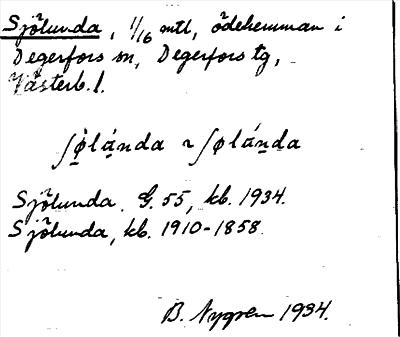 Sjölunda, 1/16 mtl, ödehemman i
Degerfors sn, Degerfors tg,
Västerb. l.
ʃø̀lánda ~ ʃølánda
Sjölunda. G. 55, kb. 1934.
Sjölunda, kb. 1910-1858.
B. Nygren 1934.